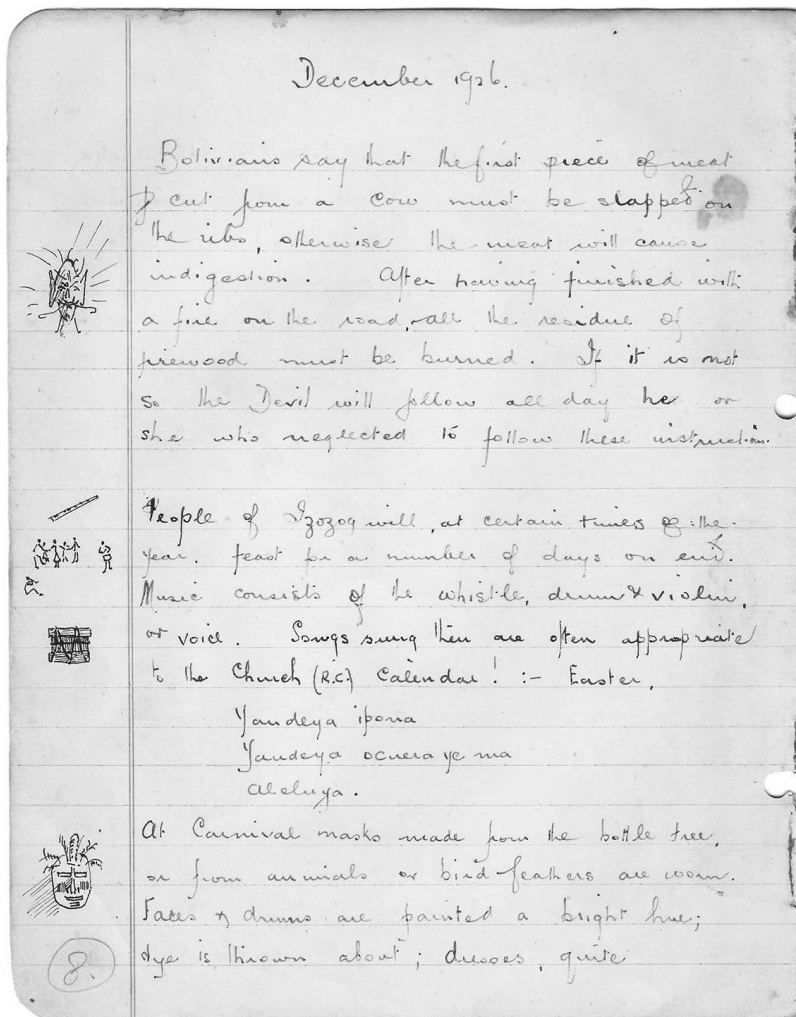 December 1926.
Bolivians say that the first piece of meat
cut from a cow must be slapped on
the ribs, otherwise the meat will cause
indigestion. After having finished with
a fire on the road, all the residue of
firewood must be burned. If it is not
so the Devil will follow all day he or
she who neglected to follow these instructions.
People of Izozog will, at certain times of the
year. feast for a number of days on end.
Music consists of the whistle, drum & violin,
or voice. Songs sung then are often appropriate
to the Church (R.C.) Calendar! :- Easter,
Yandeya ipona
Yandeya ocuera ye ma
Aleluya.
At Carnival masks made from the bottle tree,
or from animals or bird feathers are worn.
Faces & drums are painted a bright hue;
dye is thrown about; dresses, quite
8.